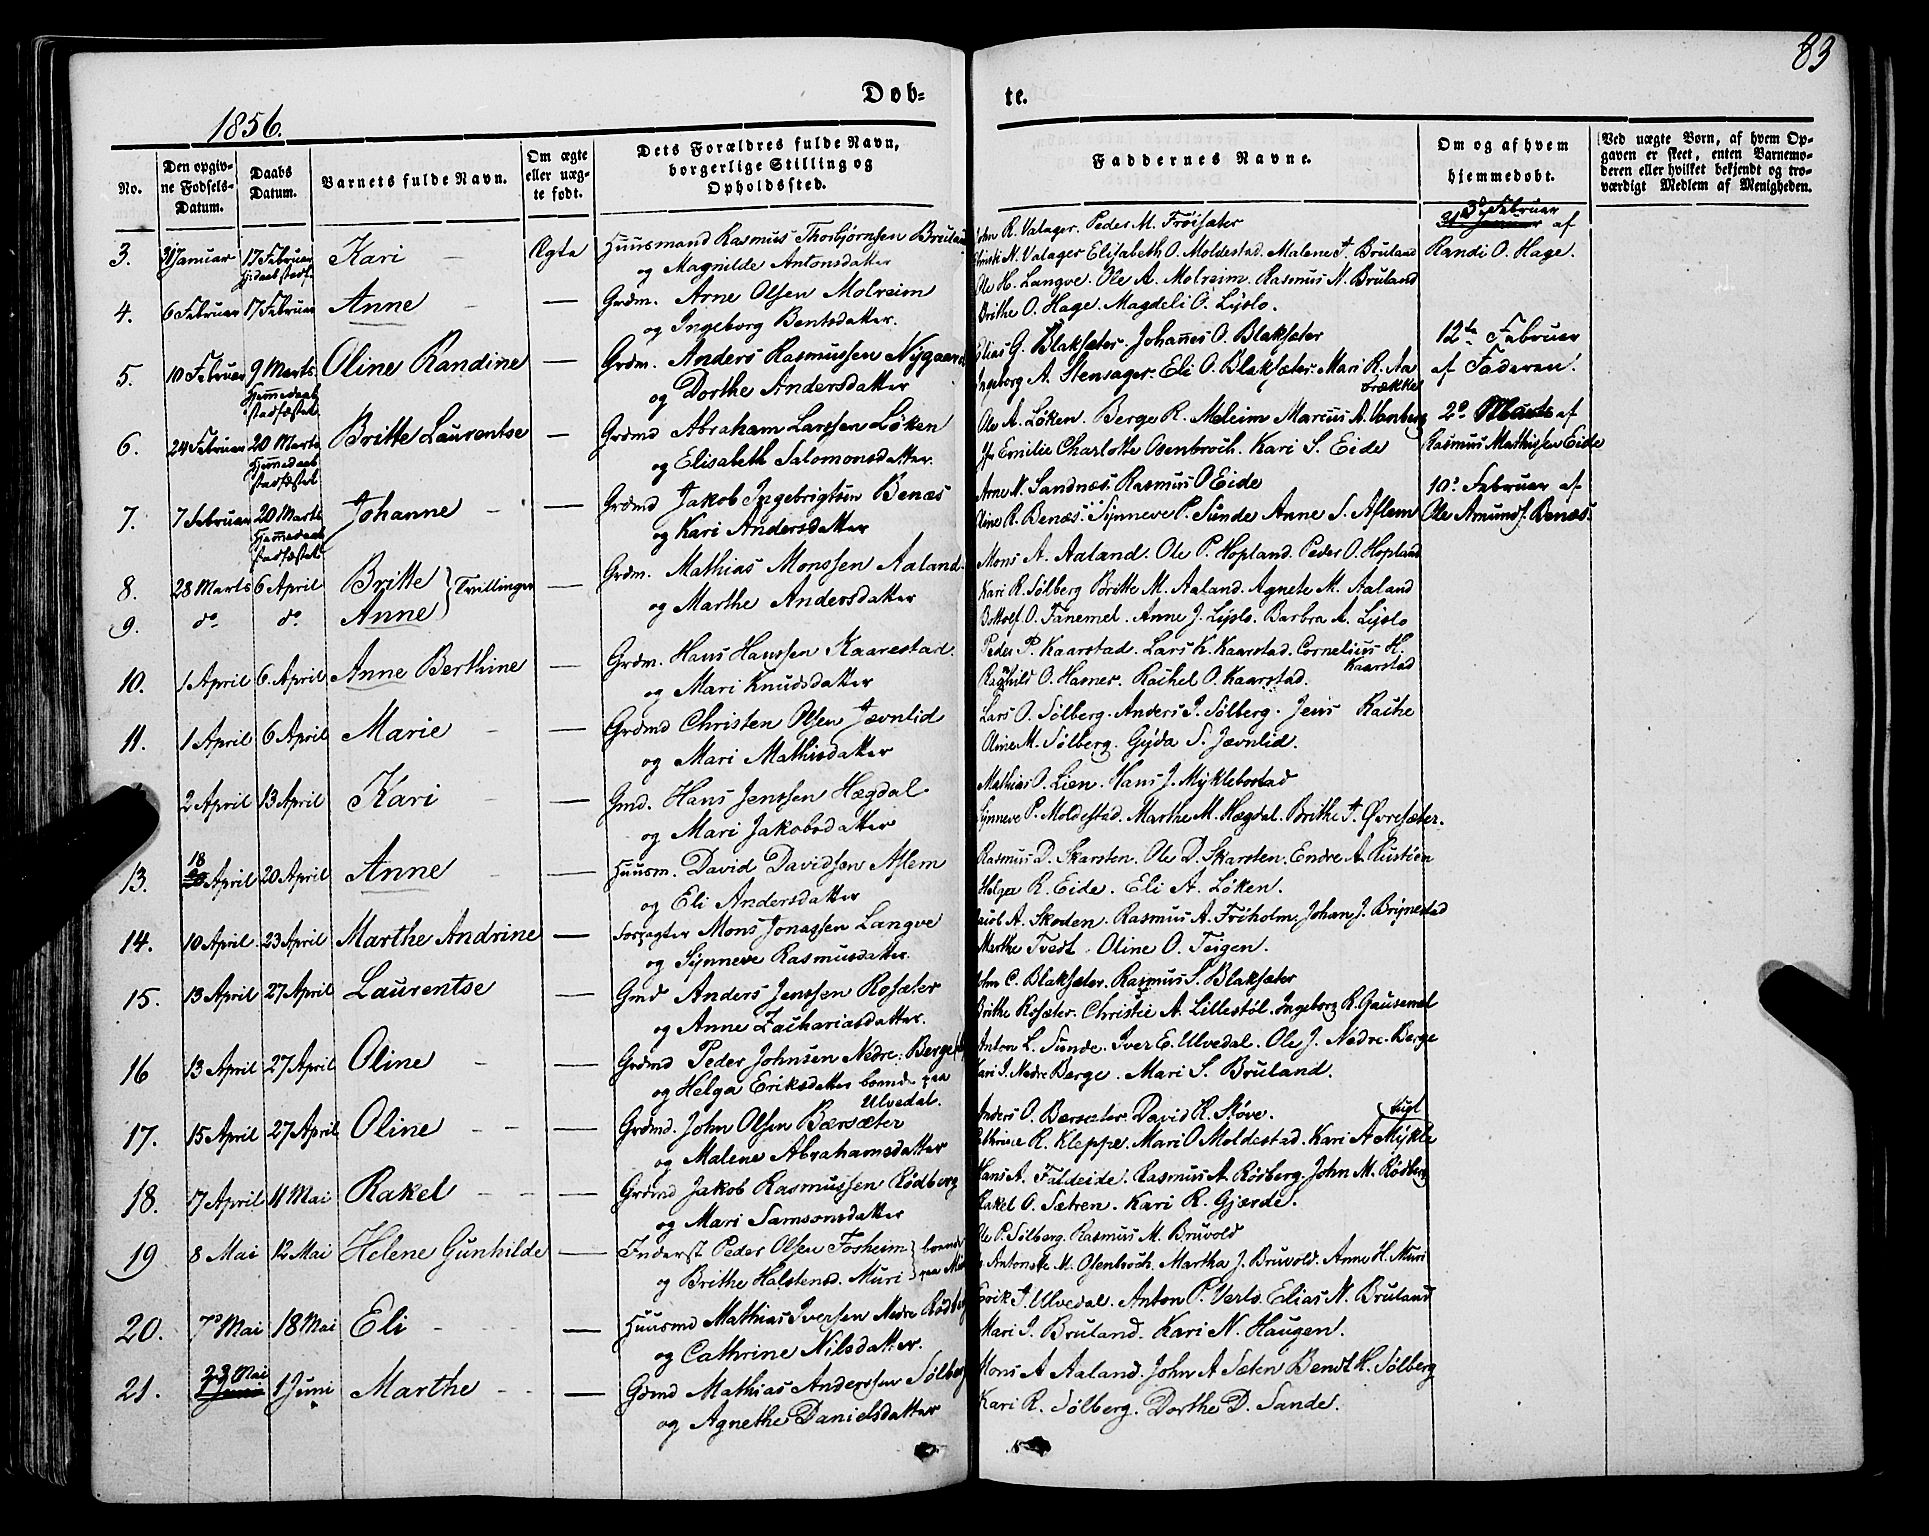 83
1856.
Døb-
te.
No.
Den opgivne Fødsels-Datum.
Daabs Datum.
Barnets fulde Navn.
Om ægte eller uægte født.
Dets Forældres fulde Navn, borgerlige Stilling og Opholdssted.
Faddernes Navne.
Om og af hvem hjemmedøbt.
Ved uægte Børn, af hvem Opgaven er skeet, enten Barnemoderen eller hvilket bekjendt og troværdigt Medlem af Menigheden.
3. 31 Januar 17 Februar Kari Ægte Huusmand Rasmus Thorbjørnsen Bruland
og Magnilde Antonsdatter
John R. Valager. Peder M. Frøisæter
N. Valager Elisabeth O. Moldestad. Malene J. Bruland
3d Februar af
Randi O. Hage.
4. 6 Februar 17 Februar Anne — Grdm. Arne Olsen Molreim
og Ingeborg Bentsdatter.
Ole H. Langve. Ole A. Molreim. Rasmus N. Bruland
Brithe O. Hage. Magdeli O. Lyslo.
5. 10 Februar 9 Marts Hjemmedaab stadfæstet Oline Randine — Grdm. Anders Rasmussen Nygaard
og Dorthe Andersdatter
Elias G. Blaksæter. Johanes O. Blaksæter
Ingeborg A. Stensager. Eli O. Blaksæter. Mari R. Aabrække
12te Februar
af Faderen.
6. 24 Februar 20 Marts Hjemmedaab stadfæstet Britte Laurentse — Grdmd Abraham Larssen Løken
og Elisabeth Salomonsdatter.
Ole A. Løken. Berge R. Meleim Marcus A. Vanberg
Emilie Charlotte Osenbroch. Kari S. Eide
2d Marts af
Rasmus Mathissen Eide
7. 7 Februar 20 Marts Hjemmedaab stadfæstet Johanne — Grdmd Jakob Ingebrigtsen Benæs
og Kari Andersdatter
Arne N. Sandnæs. Rasmus O Eide
Oline R. Benæs. Synneve P. Sunde Anne S. Aflem
10d Februar af
Ole Amunds. Benæs.
8. 28 Marts 6 April Britte } Tvillinger — Grdm. Mathias Monssen Aaland
9. do do Anne
og Marthe Andersdatter
Mons A. Aaland. Ole P. Hopland. Peder O. Hopland
Kari R. Sølberg Britte M. Aaland. Agnete M. Aaland
Bottolf O. Fanemel. Anne J. Lyslo. Barbra A. Lyslo
10. 1 April 6 April Anne Berthine — Grdm. Hans Hanssen Kaarestad.
og Mari Knudsdatter
Peder P. Kaarstad. Lars K. Kaarstad. Cornelius H. Kaarstad
Ragnild O. Hamer. Rachel O. Kaarstad.
11. 1 April 6 April Marie — Grdmd Christen Olsen Jævnlid
og Mari Mathisdatter
Lars O. Sølberg. Anders J. Sølberg. Jens Rache
Oline M. Sølberg. Gyda S. Jævnlid.
2 April 13 April Kari — Gmd. Hans Jenssen Hægdal.
og Mari Jakobsdatter
Mathias O. Lien. Hans J. Myklebostad
Synneve P. Moldestad. Marthe M. Hægdal. Brithe J. Øvresæter.
13. 18 April 20 April Anne — Huusm. David Davidsen Aflem
og Eli Andersdatter
Rasmus D. Skarsten. Ole D. Skarsten. Endre A.
Helga R. Eide. Eli A. Løken.
14. 10 April 23 April Marthe Andrine — Forpagter Mons Jonassen Langve
og Synneve Rasmusdatter.
A. Skoden. Rasmus A. Friholm. Johan J. Brynestad
Marthe Tvedt. Oline O. Teigen.
15. 13 April 27 April Laurentse — Gmd Anders Jenssen Rosæter
og Anne Zachariasdatter.
John C. Blaksæter. Rasmus S. Blaksæter
Brithe Rosæter. Christie A. Lillestøl. Ingeborg R. Gausemel
16 13 April 27 April Oline — Grdmd Peder Johnsen Nedre-Berge
og Helga Eriksdatter boende paa Ulvedal.
Anton L. Sunde. Iver E. Ulvedal. Ole J. Nedre-Berge
Kari J. Nedre Berge. Mari S. Bruland.
17. 15 April 27 April Oline — Grdmd. John Olsen Bærsæter
og Malene Abrahamsdatter
Anders O. Bærsæter. David R. Støve.
Cathrine R. Kleppe. Mari O Moldestad. Kari A Mykle
18. 7 April 11 Mai Rakel — Grdmd Jakob Rasmussen Rødberg
og Mari Samsonsdatter
Hans A. Faldeide. Rasmus A. Rødberg. John M. Rødberg
Rakel O. Sætren. Kari R. Gjerde.
19 8 Mai 12 Mai Helene Gunhilde — Inderst Peder Olsen Fosheim } boende
og Brithe Halstensd. Muri
Ole P. Sølberg. Rasmus M. Bruvold
Antonette M. Osenbroch. Martha J. Bruvold. Anne H. Muri
20. 7d Mai 18 Mai Eli — Huusmd Mathias Iversen Nedre Rødberg
og Cathrine Nilsdatter.
Erik J. Ulvedal. Anton P. Verlo. Elias N. Bruland
Mari J. Bruland. Kari N. Haugen.
21. 23 Mai 1 Juni Marthe — Grdmd Mathias Anderssen Sølberg
og Agnethe Danielsdatter
Mons A Aaland. John A Sæten Bendt H. Sølberg
Kari R. Sølberg. Dorthe D. Sande.